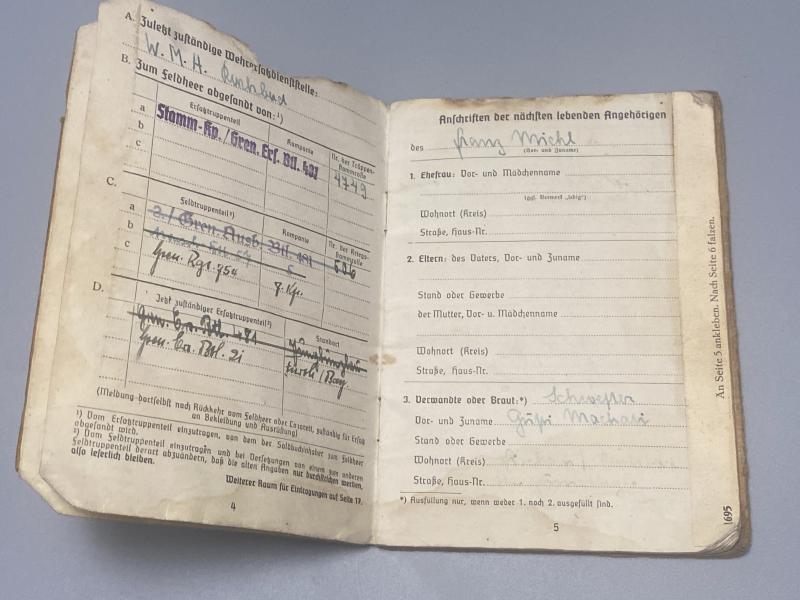 A. Zuletzt zuständige Wehrersatzdienststelle:
W. M. H.
B. Zum Feldheer abgesandt von: ¹)
Ersatztruppenteil
Kompanie
Nr. der Truppen-
stammrolle
a Stamm-Kp. / Gren. Ers. Btl. 481
4749
b
c
C.
Feldtruppenteil²)
Kompanie
Nr. der Kriegs-
stammrolle
a 2./ Gren. Ausb. Btl. 481
506
b
5
c Gren. Rgt. 754
7. Kp.
D.
Jetzt zuständiger Ersatztruppenteil²)
Standort
Gren. Ers. Btl. 481
Gren. Ers. Btl. 21
/ Bay.
(Meldung dortselbst nach Rückkehr vom Feldheer oder Lazarett, zuständig für Ersatz
an Bekleidung und Ausrüstung)
¹) Vom Ersatztruppenteil einzutragen, von dem der Soldbuchinhaber zum Feldheer
abgesandt wird.
²) Vom Feldtruppenteil einzutragen und bei Versetzungen von einem zum anderen
Feldtruppenteil derart abzuändern, daß die alten Angaben nur durchstrichen werden,
also leserlich bleiben.
Weiterer Raum für Eintragungen auf Seite 17.
4
Anschriften der nächsten lebenden Angehörigen
des Franz Michl
(Vor- und Zuname)
1. Ehefrau: Vor- und Mädchenname
(ggf. Vermerk „ledig")
Wohnort (Kreis)
Straße, Haus-Nr.
2. Eltern: des Vaters, Vor- und Zuname
Stand oder Gewerbe
der Mutter, Vor- u. Mädchenname
Wohnort (Kreis)
Straße, Haus-Nr.
3. Verwandte oder Braut:*) Schwester
Vor- und Zuname
Stand oder Gewerbe
Wohnort (Kreis)
Straße, Haus-Nr.
*) Ausfüllung nur, wenn weder 1. noch 2. ausgefüllt sind.
5
An Seite 5 ankleben. Nach Seite 6 falzen.
1695